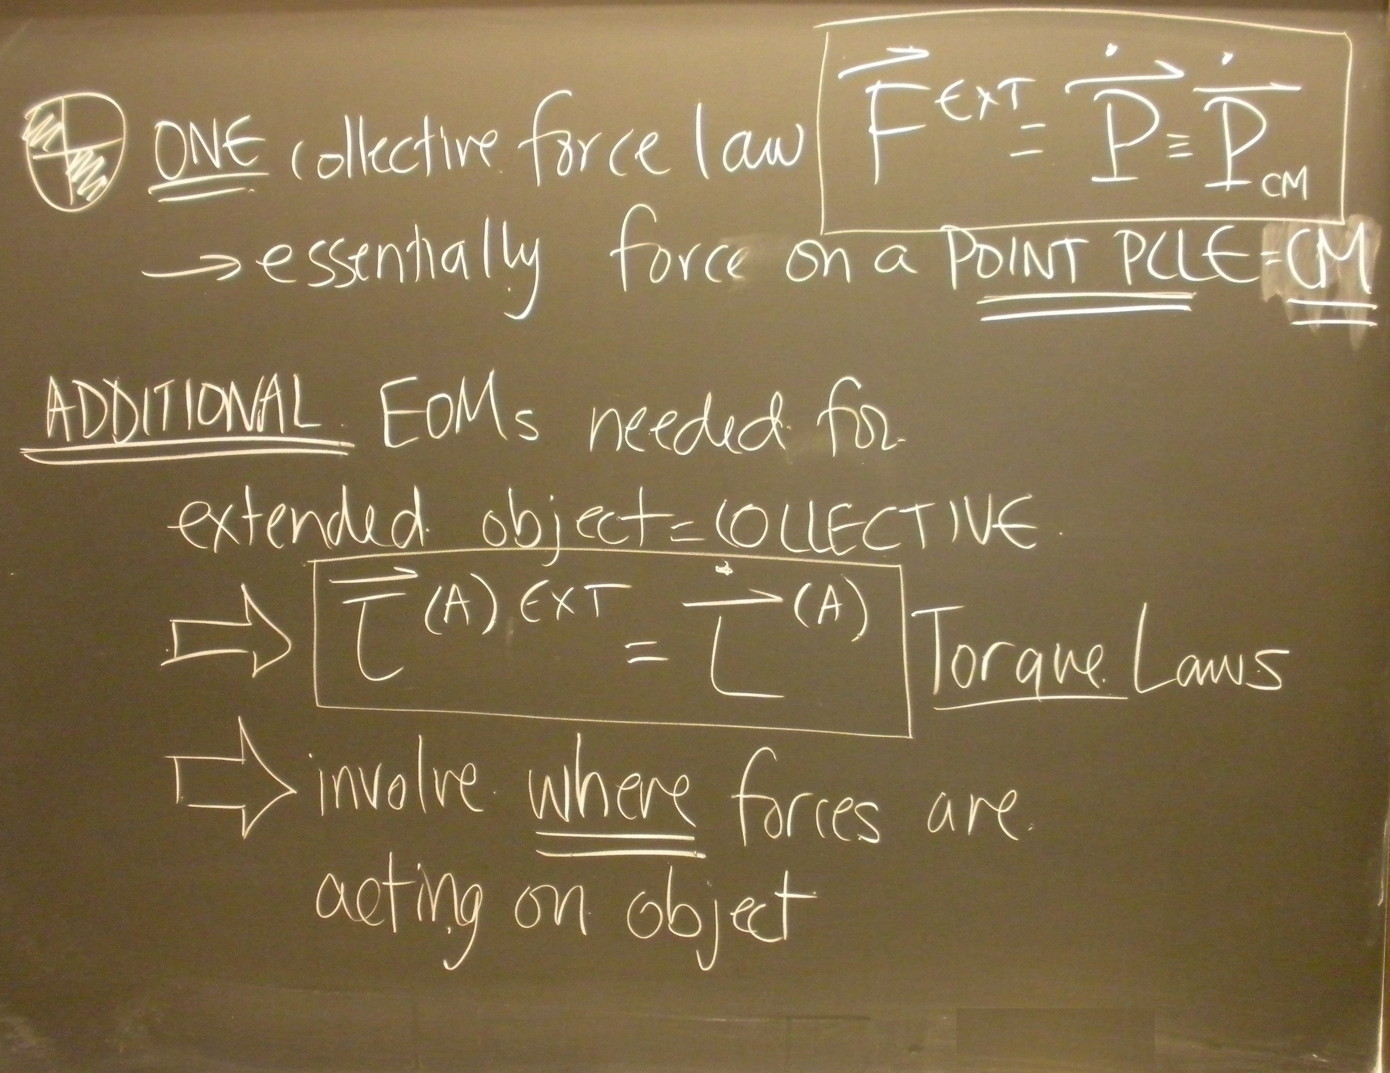 ONE collective force law F⃗^EXT = Ṗ⃗ ≡ Ṗ⃗_CM
→ essentially force on a POINT PCLE = CM
ADDITIONAL EOMs needed for
extended object = COLLECTIVE
⇒ τ⃗^(A) EXT = L̇⃗^(A) Torque Laws
⇒ involve where forces are
acting on object